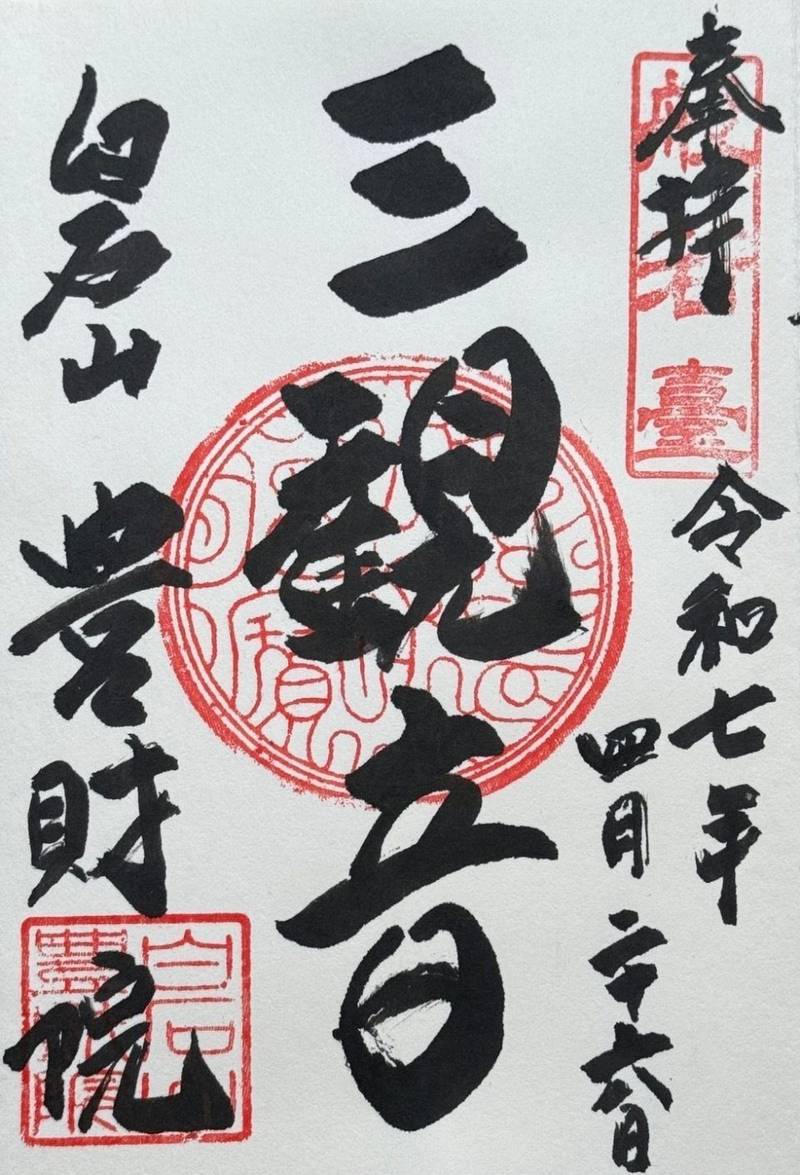 奉拝
臺
令和七年
四月二十六日
三観音
白石山 豊財院
白石山
豐財院